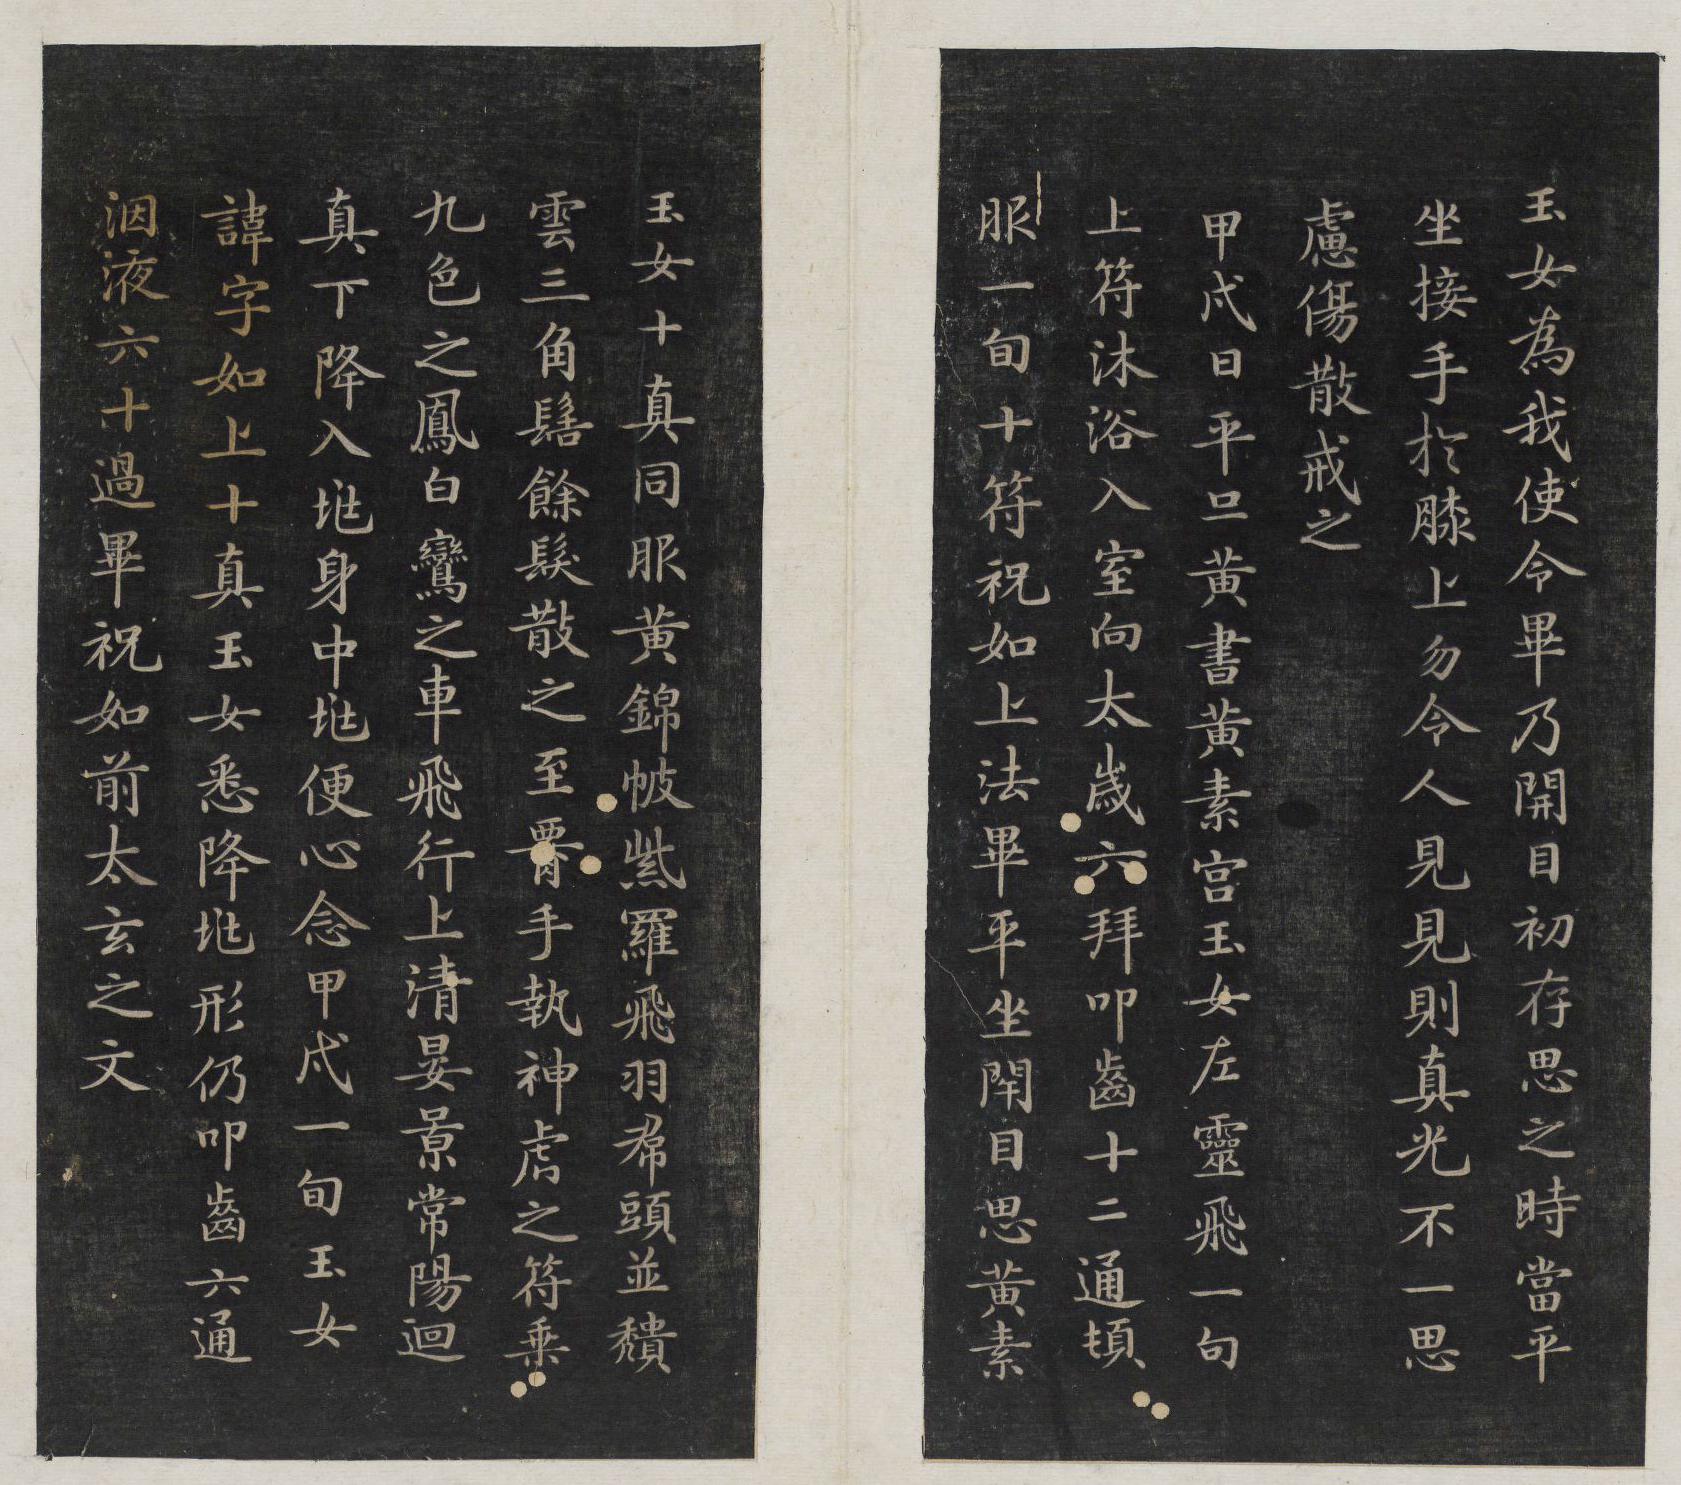 玉女為我使令畢乃開目初存思之時當平
坐接手於膝上勿令人見見則真光不一思
慮傷散戒之
甲戌日平旦黃書黃素宮玉女左靈飛一旬
上符沐浴入室向太歲六拜叩齒十二通頓
服一旬十符祝如上法畢平坐閇目思黃素
玉女十真同服黃錦帔紫羅飛羽帬頭並穨
雲三角髻餘髮散之至署手執神虎之符乗
九色之鳳白鸞之車飛行上清晏景常陽迴
真下降入𡉏身中𡉏便心念甲戌一旬玉女
諱字如上十真玉女悉降𡉏形仍叩齒六通
洇液六十過畢祝如前太玄之文